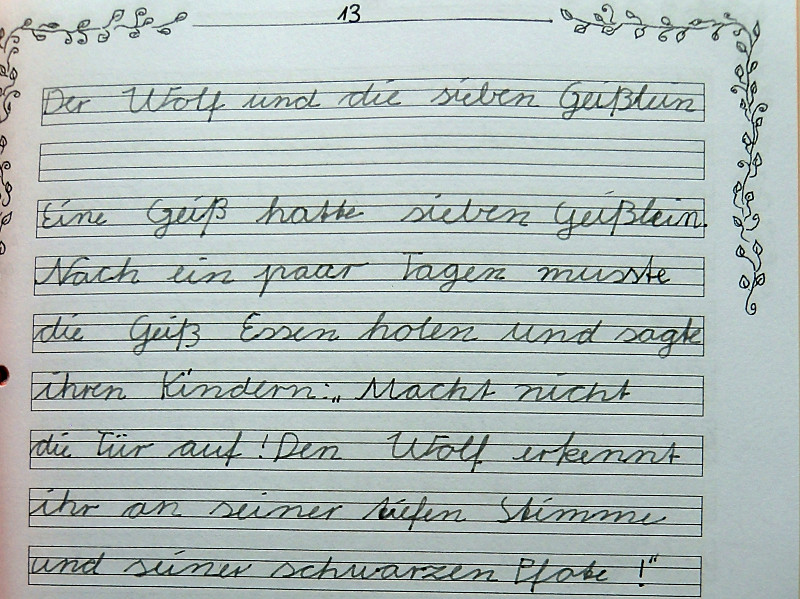 13
Der Wolf und die sieben Geißlein
Eine Geiß hatte sieben Geißlein.
Nach ein paar Tagen musste
die Geiß Essen holen und sagte
ihren Kindern: „Macht nicht
die Tür auf! Den Wolf erkennt
ihr an seiner tiefen Stimme
und seiner schwarzen Pfote!“